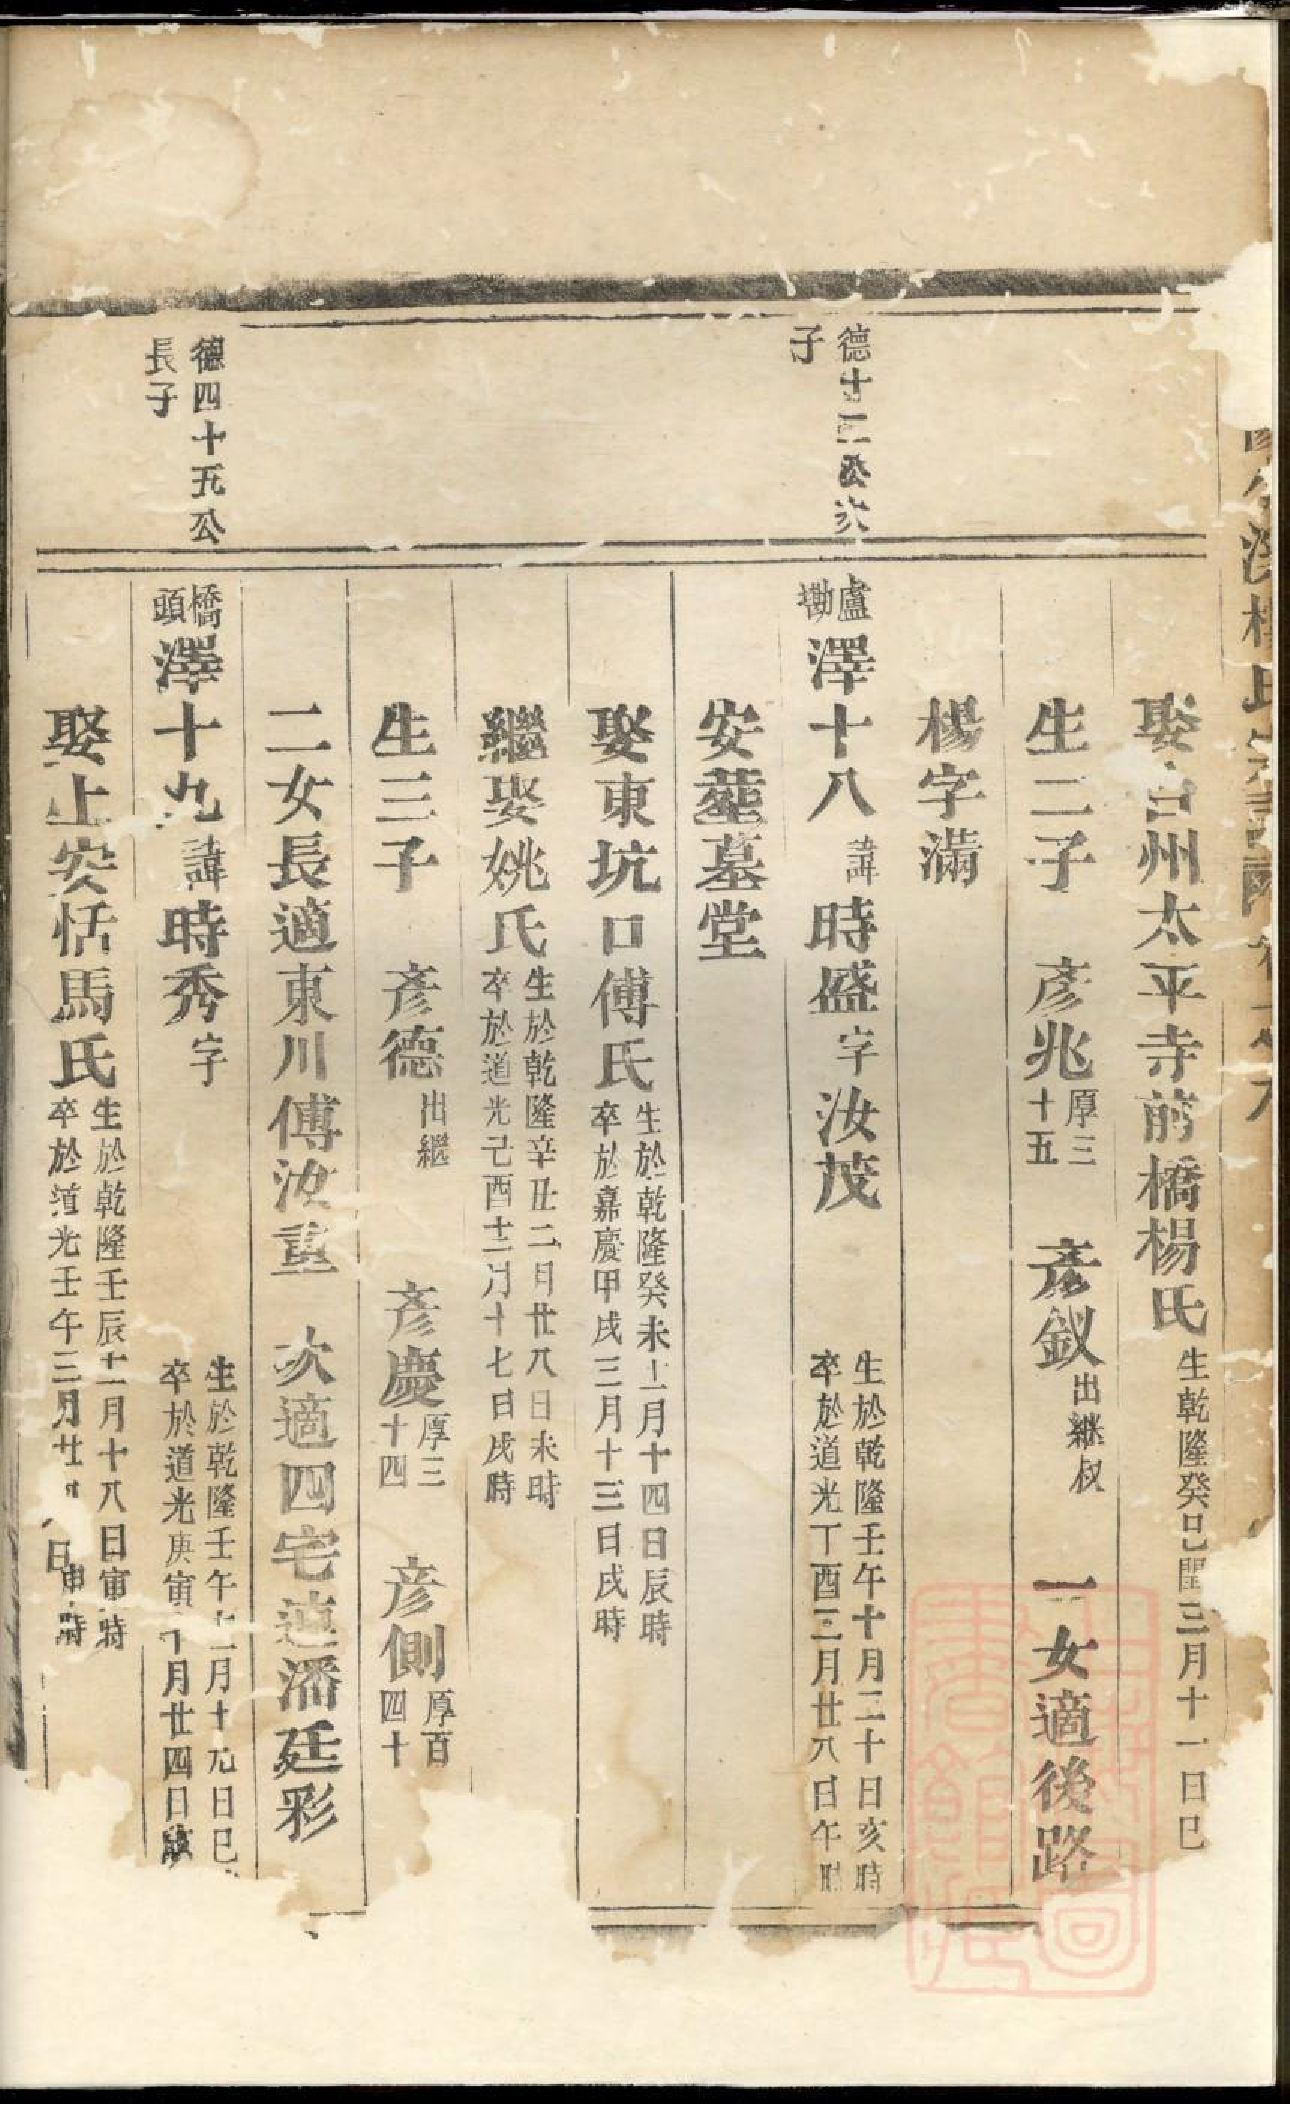 娶台州太平寺前橋楊氏 生乾隆癸巳閏三月十一日巳
生二子 彥兆 厚三十五 彥釵 出継叔 一女適後路
楊字滿
德十二公次子
盧墈 澤十八 諱 時盛 字 汝茂 生於乾隆壬午十月二十日亥時 卒於道光丁酉三月廿八日午時
安塟墓堂
娶東坑口傅氏 生於乾隆癸未十一月十四日辰時 卒於嘉慶甲戌三月十三日戌時
繼娶姚氏 生於乾隆辛丑二月廿八日未時 卒於道光己酉十二月十七日戌時
生三子 彥德 出繼 彥慶 厚三十四 彥側 厚百四十
二女長適東川傅汝重 次適四宅連潘廷彩
德四十五公長子
橋頭 澤十九 諱 時秀 字 生於乾隆壬午十二月十九日巳 卒於道光庚寅十月廿四日
娶上安恬馬氏 生於乾隆壬辰十二月十八日寅時 卒於道光壬午三月廿 日申時